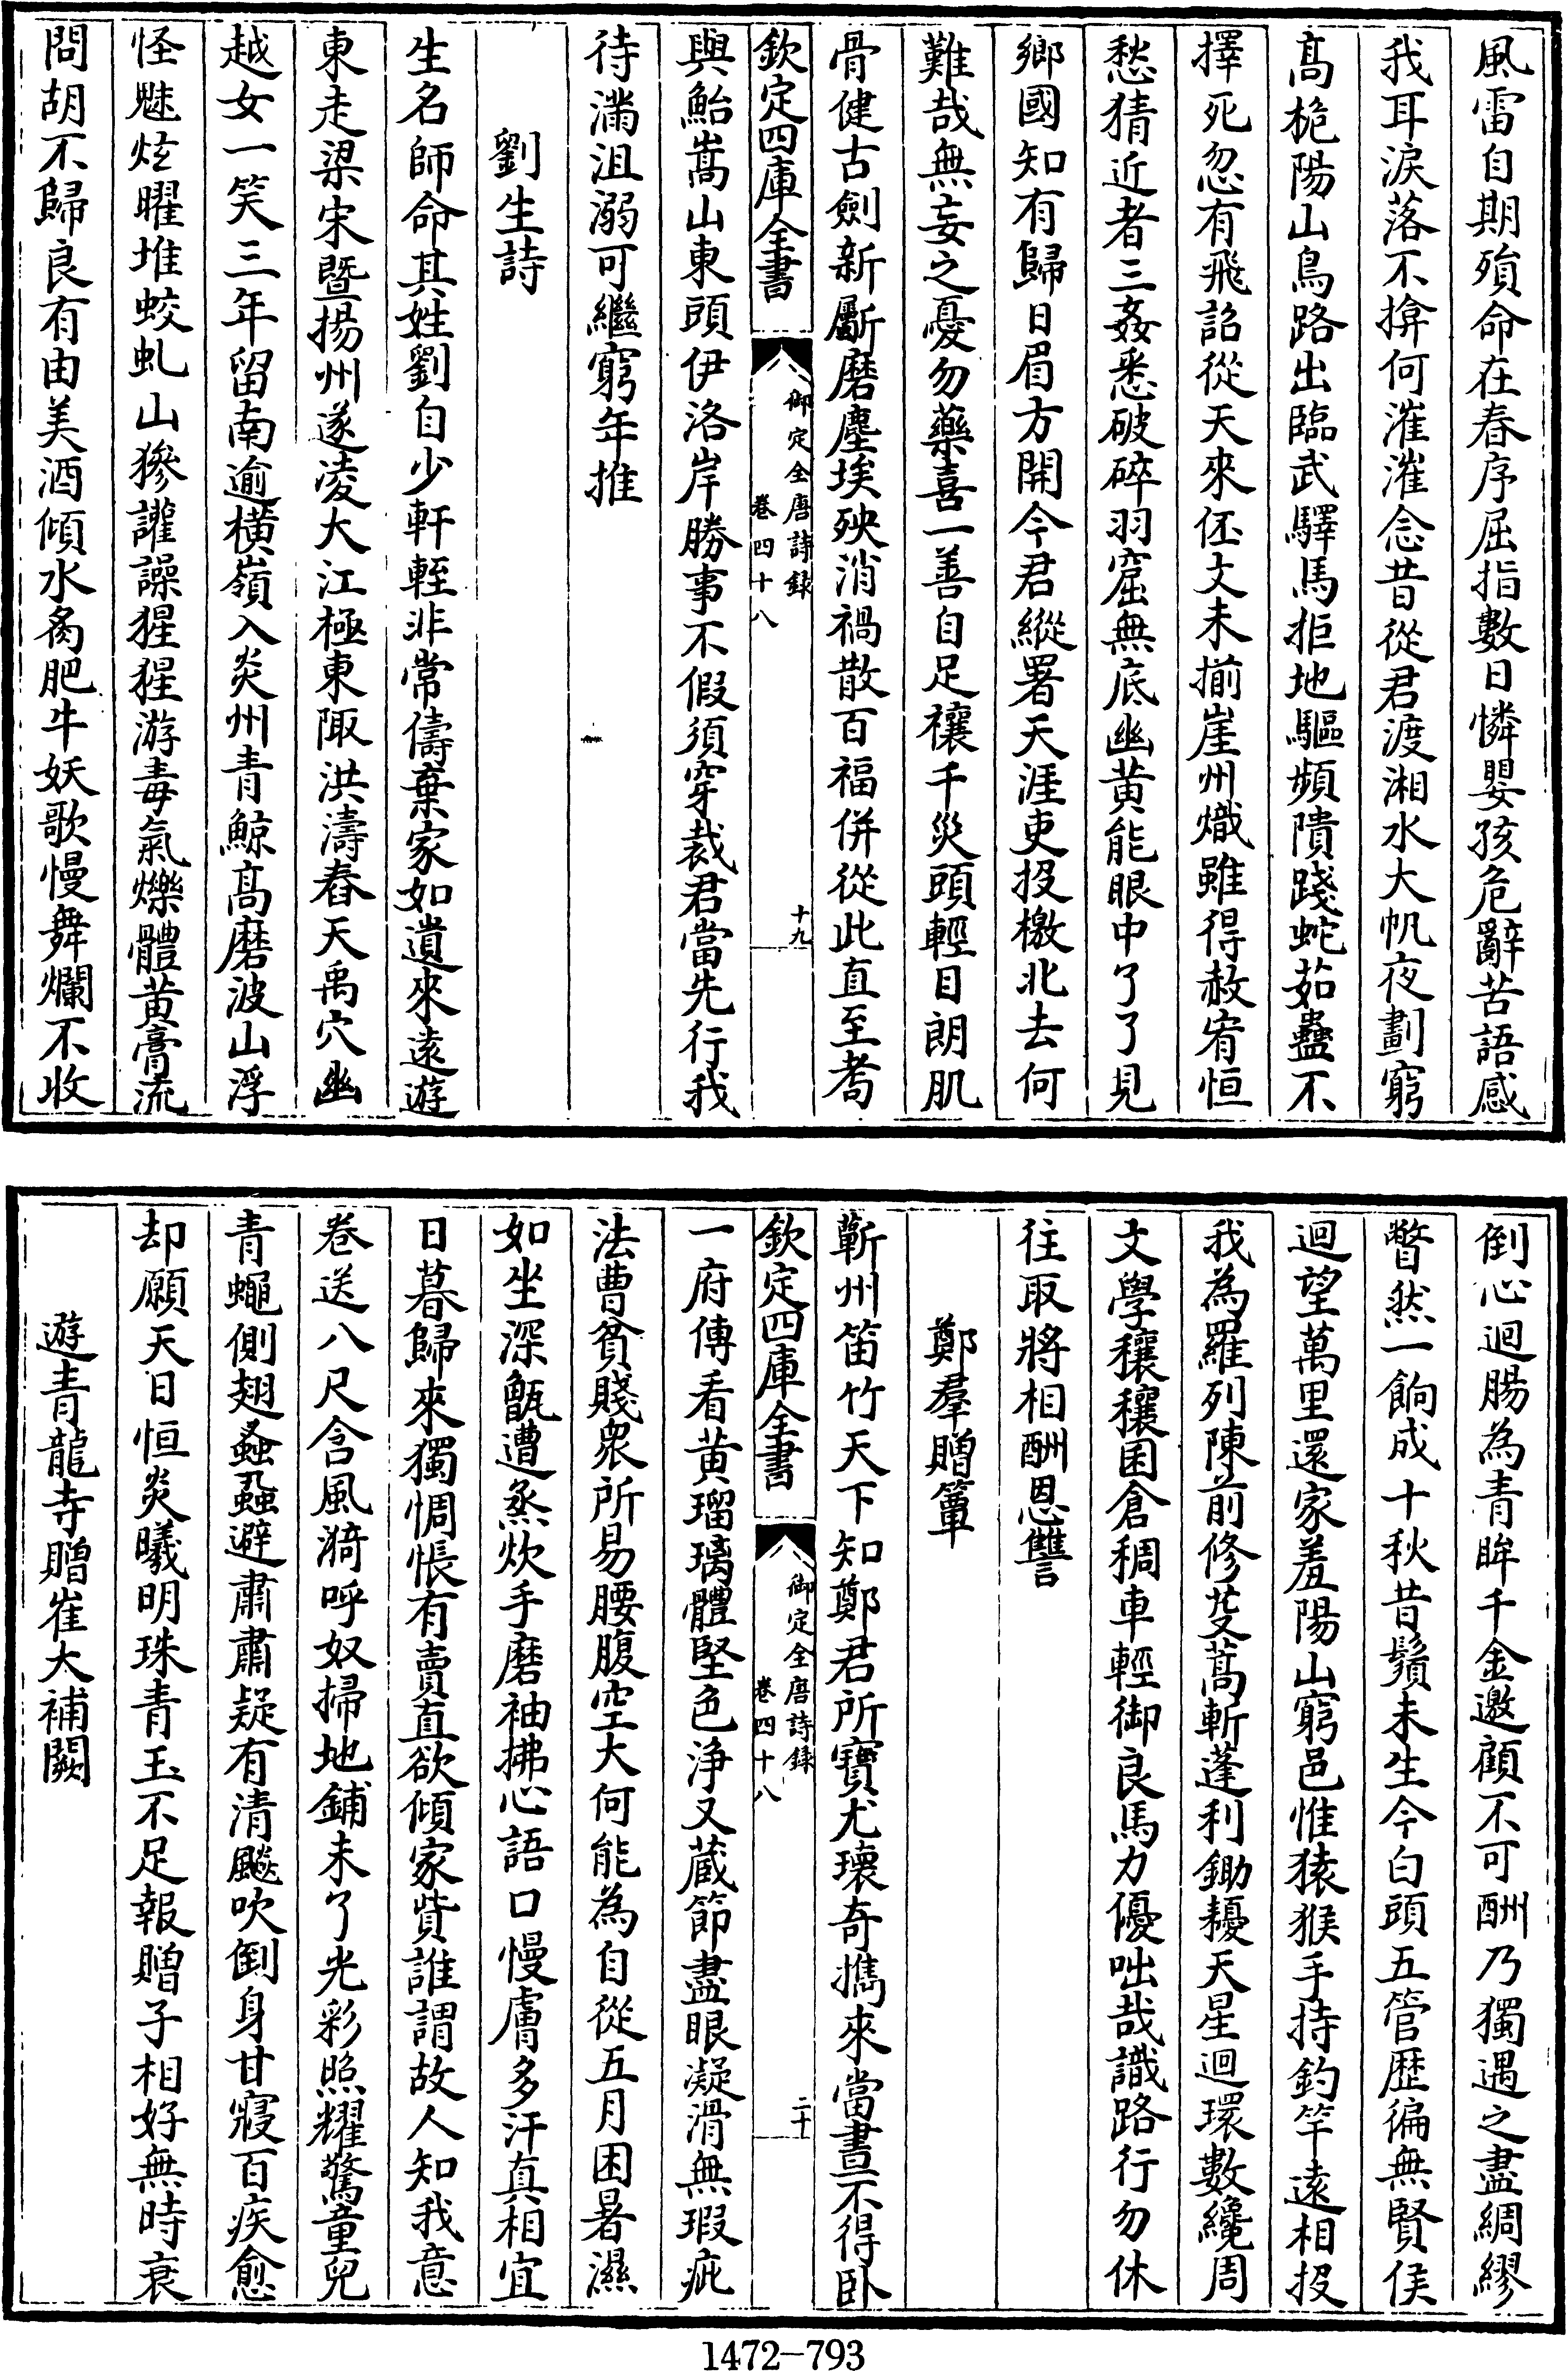 風雷自期殞命在春序屈指數日憐嬰孩危辭苦語感
我耳淚落不揜何漼漼念昔從君渡湘水大帆夜劃窮
髙桅陽山鳥路出臨武驛馬拒地驅頻隤踐蛇茹蠱不
擇死忽有飛詔從天來伾文未揃崖州熾雖得赦宥恒
愁猜近者三姦悉破碎羽窟無底幽黄能眼中了了見
鄉國知有歸日眉方開今君縱署天涯吏投檄北去何
難哉無妄之憂勿藥喜一善自足禳千災頭輕目朗肌
骨健古劍新劚磨塵埃殃消禍散百福併從此直至耇
欽定四庫全書
御定全唐詩録
卷四十八
十九
與鮐嵩山東頭伊洛岸勝事不假須穿裁君當先行我
待滿沮溺可繼窮年推
劉生詩
生名師命其姓劉自少軒輊非常儔棄家如遺來逺遊
東走梁宋暨揚州遂凌大江極東陬洪濤舂天禹穴幽
越女一笑三年留南逾橫嶺入炎州青鯨髙磨波山浮
怪魅炫曜堆蛟虬山㺑讙譟猩猩游毒氣爍體黄膏流
問胡不歸良有由美酒傾水臠肥牛妖歌慢舞爛不收
倒心迴腸為青眸千金邀顧不可酬乃獨遇之盡綢繆
瞥然一餉成十秋昔鬚未生今白頭五管歴徧無賢侯
迴望萬里還家羞陽山窮邑惟猿猴手持釣竿逺相投
我為羅列陳前修芟蒿斬蓬利鋤耰天星迴環數纔周
文學穰穰囷倉稠車輕御良馬力優咄哉識路行勿休
往取將相酬恩讐
鄭羣贈簟
蘄州笛竹天下知鄭君所寶尤瓌奇攜來當晝不得卧
一府傳看黄瑠璃體堅色浄又藏節盡眼凝滑無瑕疵
法曹貧賤衆所易腰腹空大何能為自從五月困暑濕
如坐深甑遭烝炊手磨袖拂心語口慢膚多汗真相宜
日暮歸來獨惆悵有賣直欲傾家貲誰謂故人知我意
卷送八尺含風漪呼奴掃地鋪未了光彩照耀驚童兒
青蠅側翅蚤蝨避肅肅疑有清飈吹倒身甘寢百疾愈
却願天日恒炎曦明珠青玉不足報贈子相好無時衰
遊青龍寺贈崔大補闕
欽定四庫全書
御定全唐詩録
卷四十八
二十
1472-793